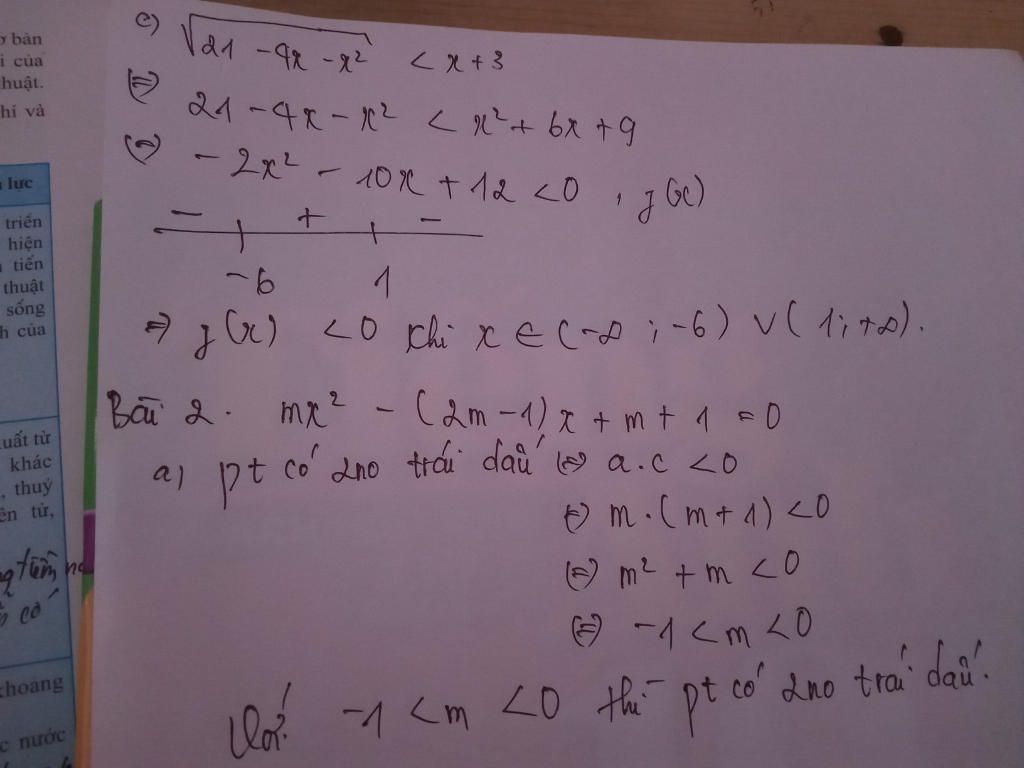 ơ bản
i của
huật.
hỉ và
lực
triển
hiện
tiến
thuật
sống
h của
uất từ
khác
, thuỷ
ên tử,
có
khoáng
c nước
c) √21 - 4x - x² < x + 3
(⇔) 21 - 4x - x² < x² + 6x + 9
(⇔) - 2x² - 10x + 12 < 0 , g(x)
- + -
-6 1
⇒ g(x) < 0 khi x ∈ (-∞ ; -6) ∪ (1; +∞).
Bài 2. mx² - (2m - 1)x + m + 1 = 0
a) pt có 2no trái dấu (⇔) a.c < 0
(⇔) m.(m + 1) < 0
(⇔) m² + m < 0
(⇔) -1 < m < 0
Với -1 < m < 0 thì pt có 2no trái dấu.